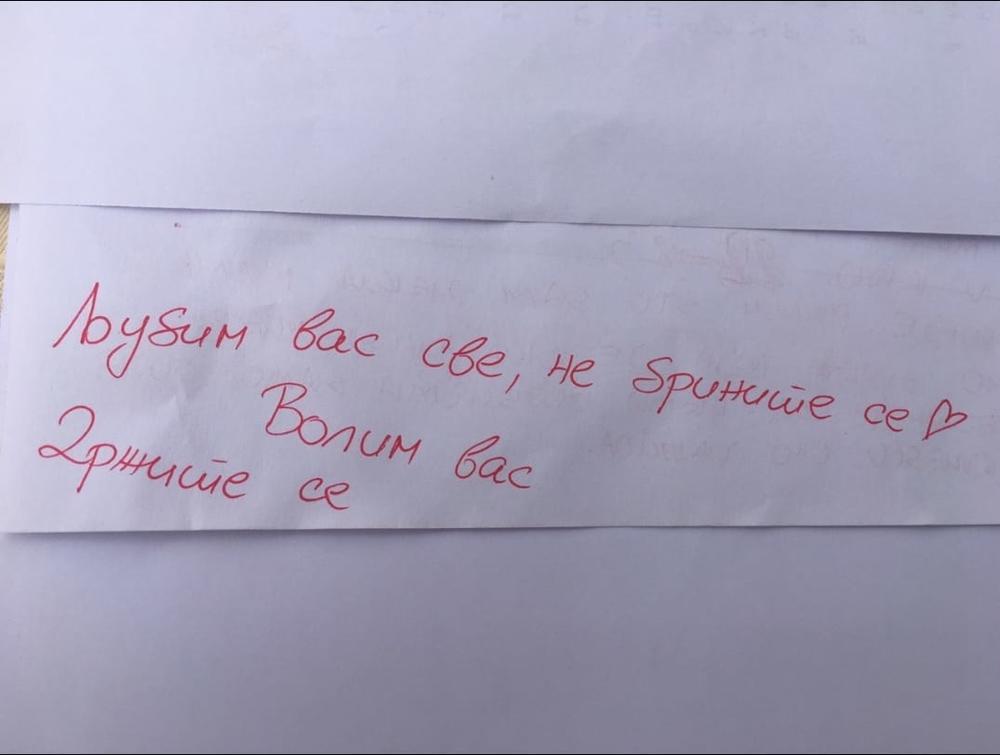 Љубим вас све, не брините се ♡
Волим вас
Држите се